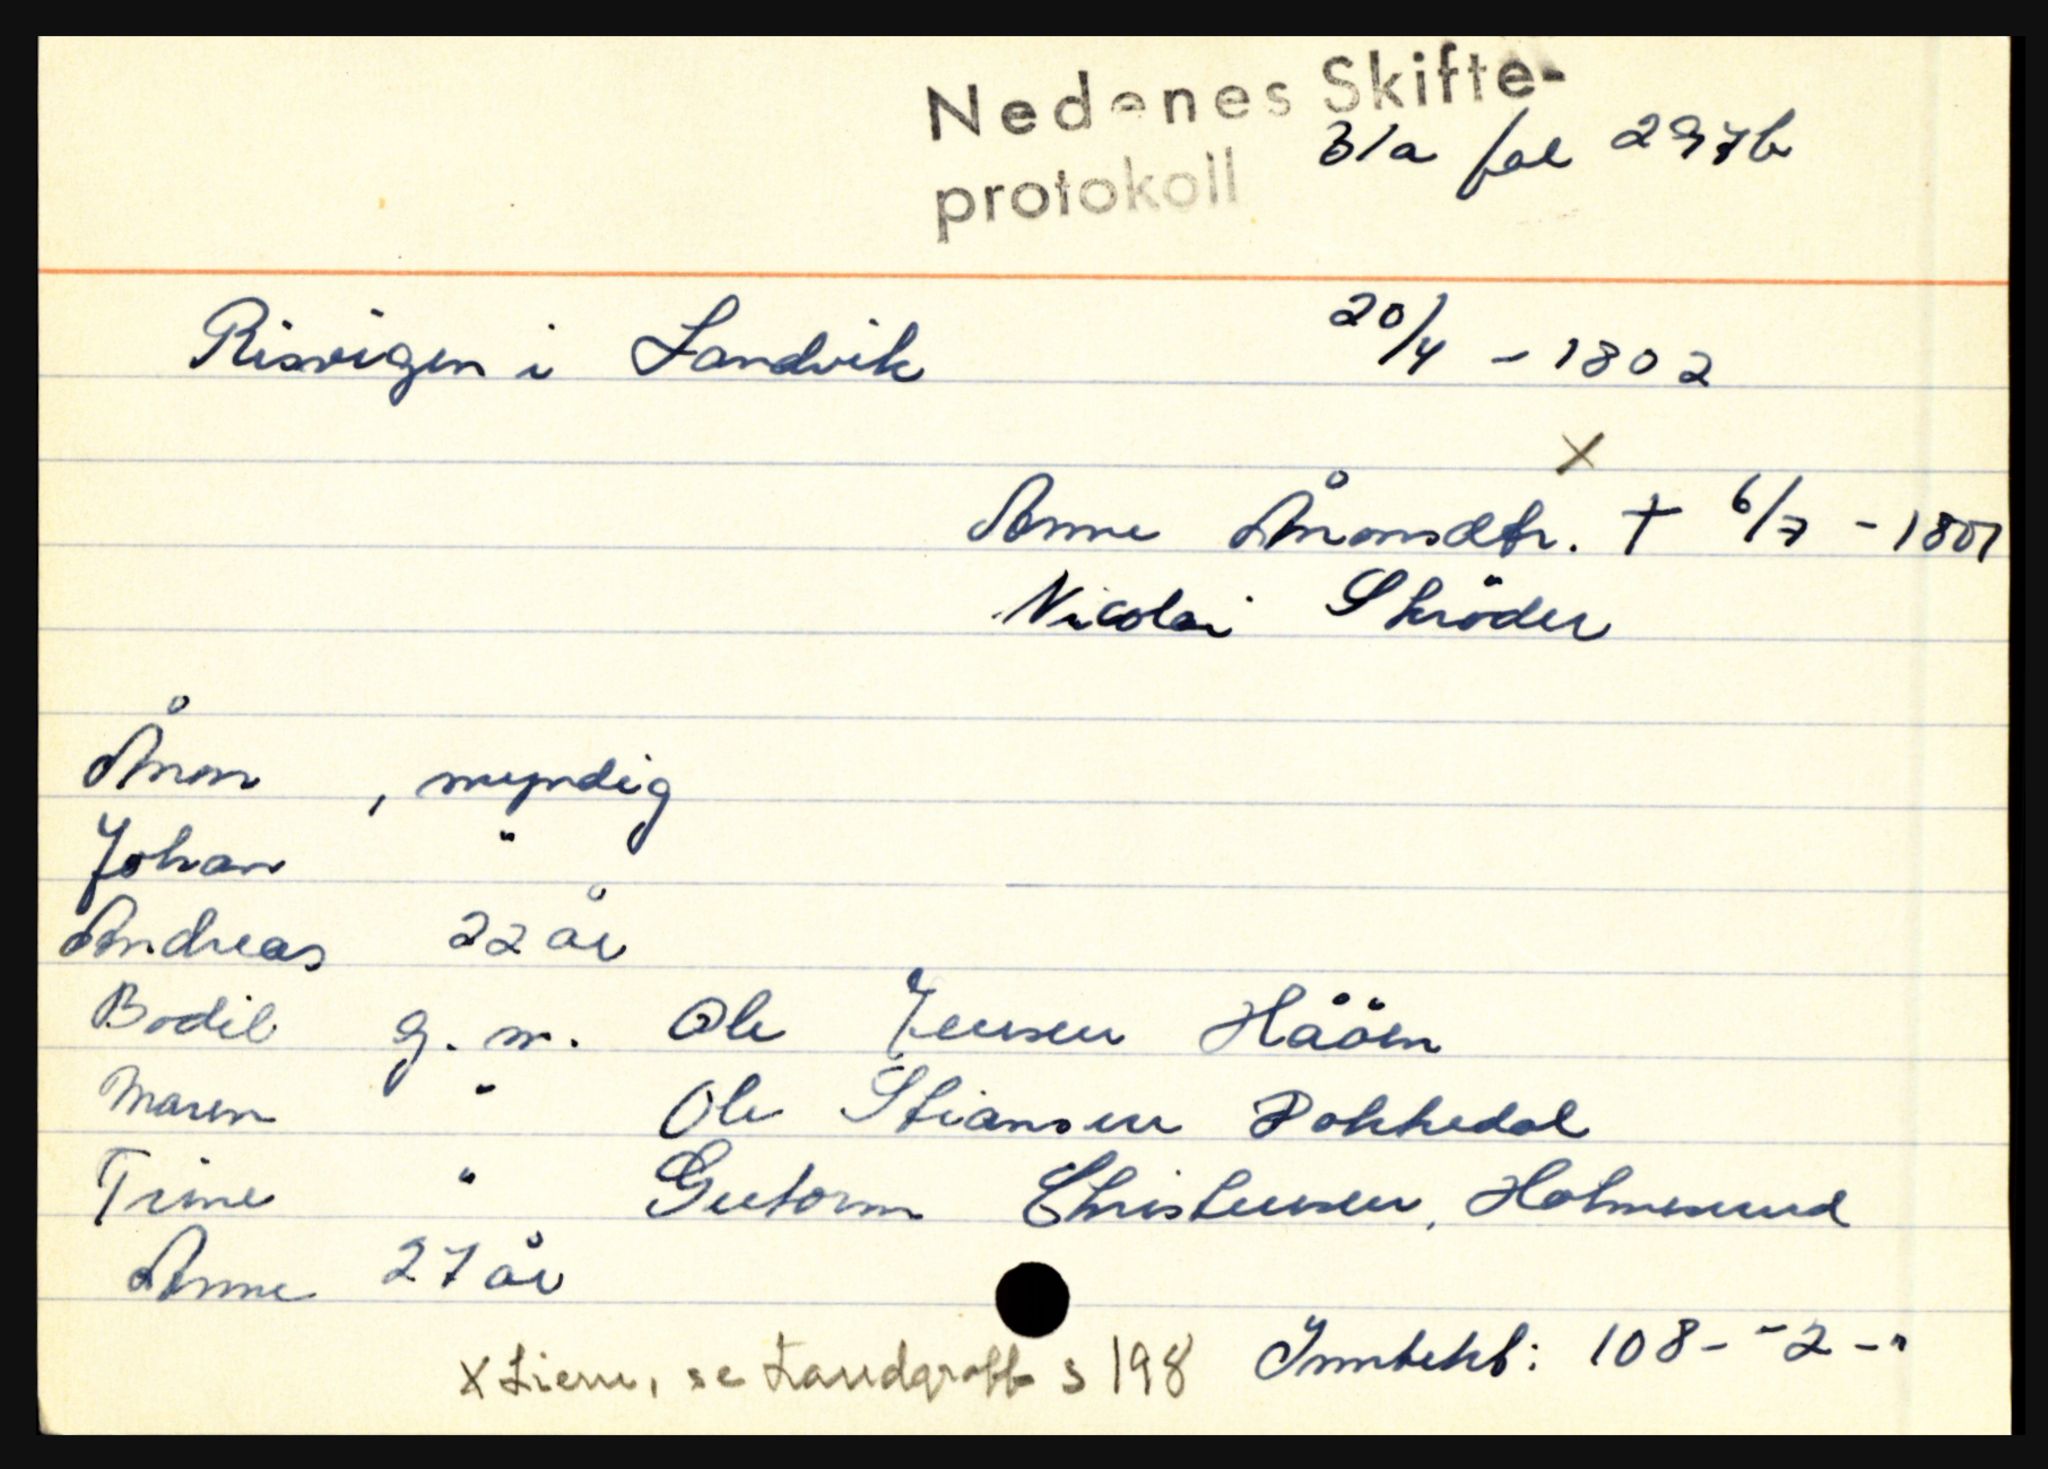 Nedenes Skifte-
protokoll
31a fol 297b
Risvigen i Landvik 20/4 - 1802
x
Anne Ånonsdtr. † 6/7 - 1801
Nicolai Skröder
Ånon , myndig
Johan "
Andreas 22 år
Bodil g. m. Ole Jensen Hååen
Maren " Ole Stiansen Dokkedal
Trine " Gutorm Christensen, Holmesund
Anne 27 år
x Lien, se Landgraff s 198
Inntekt: 108- - 2 - "